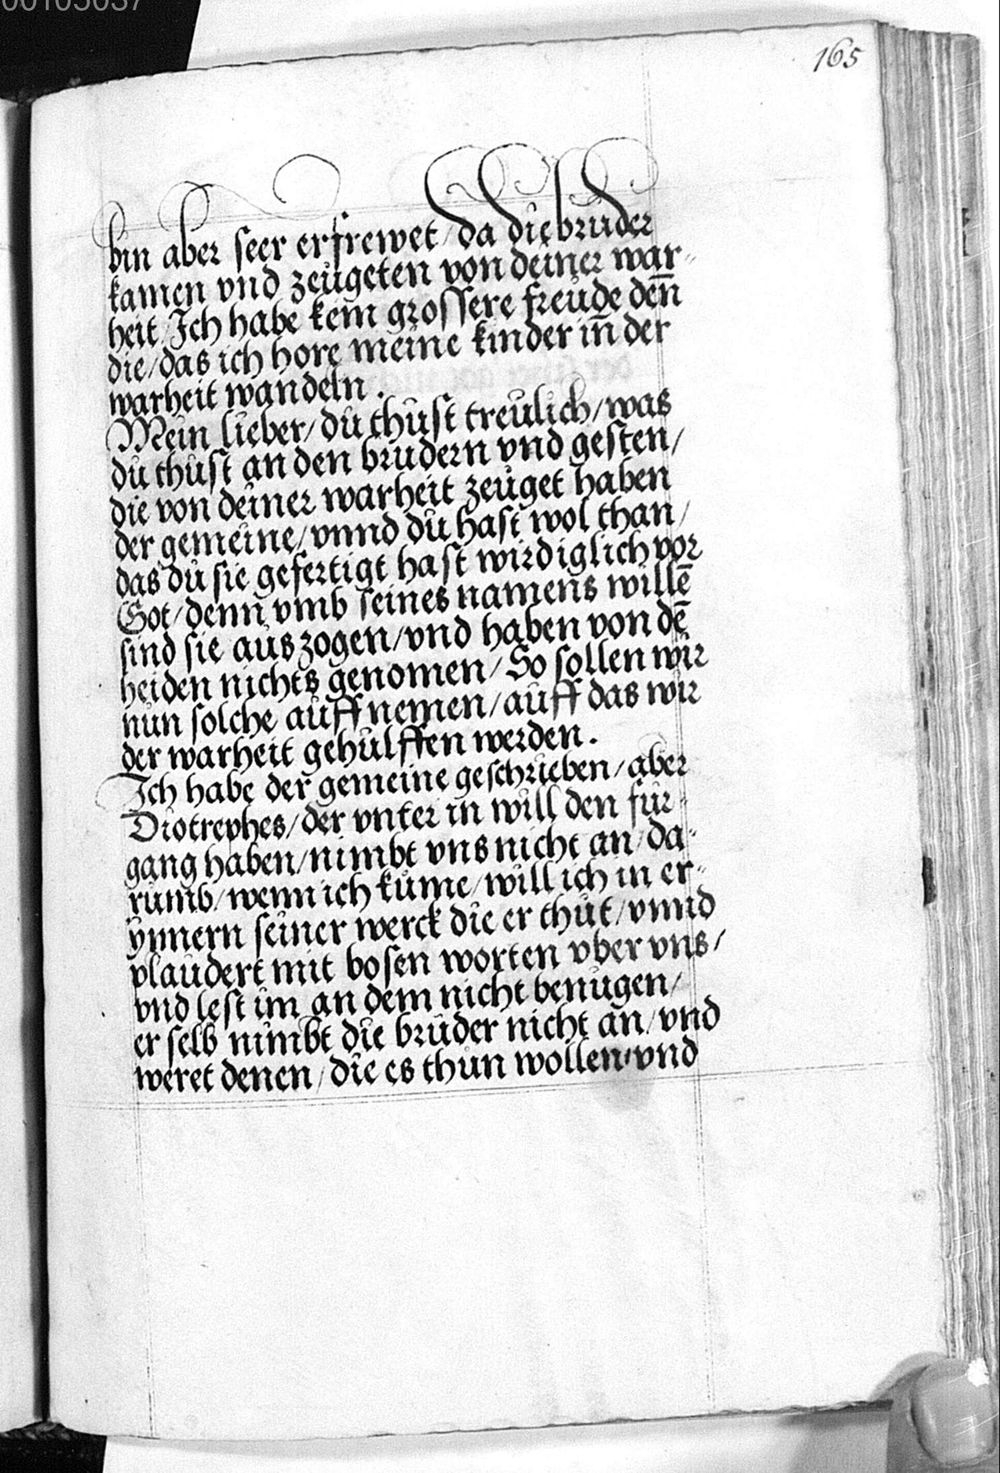 00105037
165
bin aber seer erfrewet/da die bruder
kamen vnd zeugeten von deiner war-
heit/Ich habe kein grossere freude den̄
die/das ich hore meine kinder in̄ der
warheit wandeln.
Mein lieber/du thust treulich/was
du thust an den brudern vnd gesten/
die von deiner warheit zeuget haben
der gemeine/vnnd du hast wol than/
das du sie gefertigt hast wirdiglich vor
Got/denn vmb seines namens willē
sind sie aus zogen/vnd haben von dē
heiden nichts genomen/So sollen wir
nun solche auff nemen/auff das wir
der warheit gehulffen werden.
Ich habe der gemeine geschrieben/aber
Diotrephes/der vnter in will den fur-
gang haben/nimbt vns nicht an/da-
rumb/wenn ich kume/will ich in er-
ynnern seiner werck die er thut/vnnd
plaudert mit bosen worten vber vns/
vnd lest im an dem nicht benugen/
er selb nimbt die bruder nicht an/vnd
weret denen/die es thun wollen/vnd